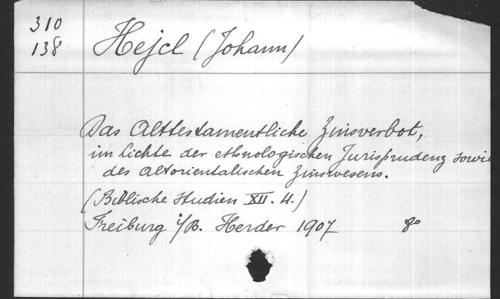 310
138
Hejcl (Johann)
Das Alttestamentliche Zinsverbot,
im Lichte der ethnologischen Jurisprudenz sowie
des altorientalischen Zinswesens.
(Biblische Studien XII. 4.)
Freiburg i/B. Herder 1907 8o